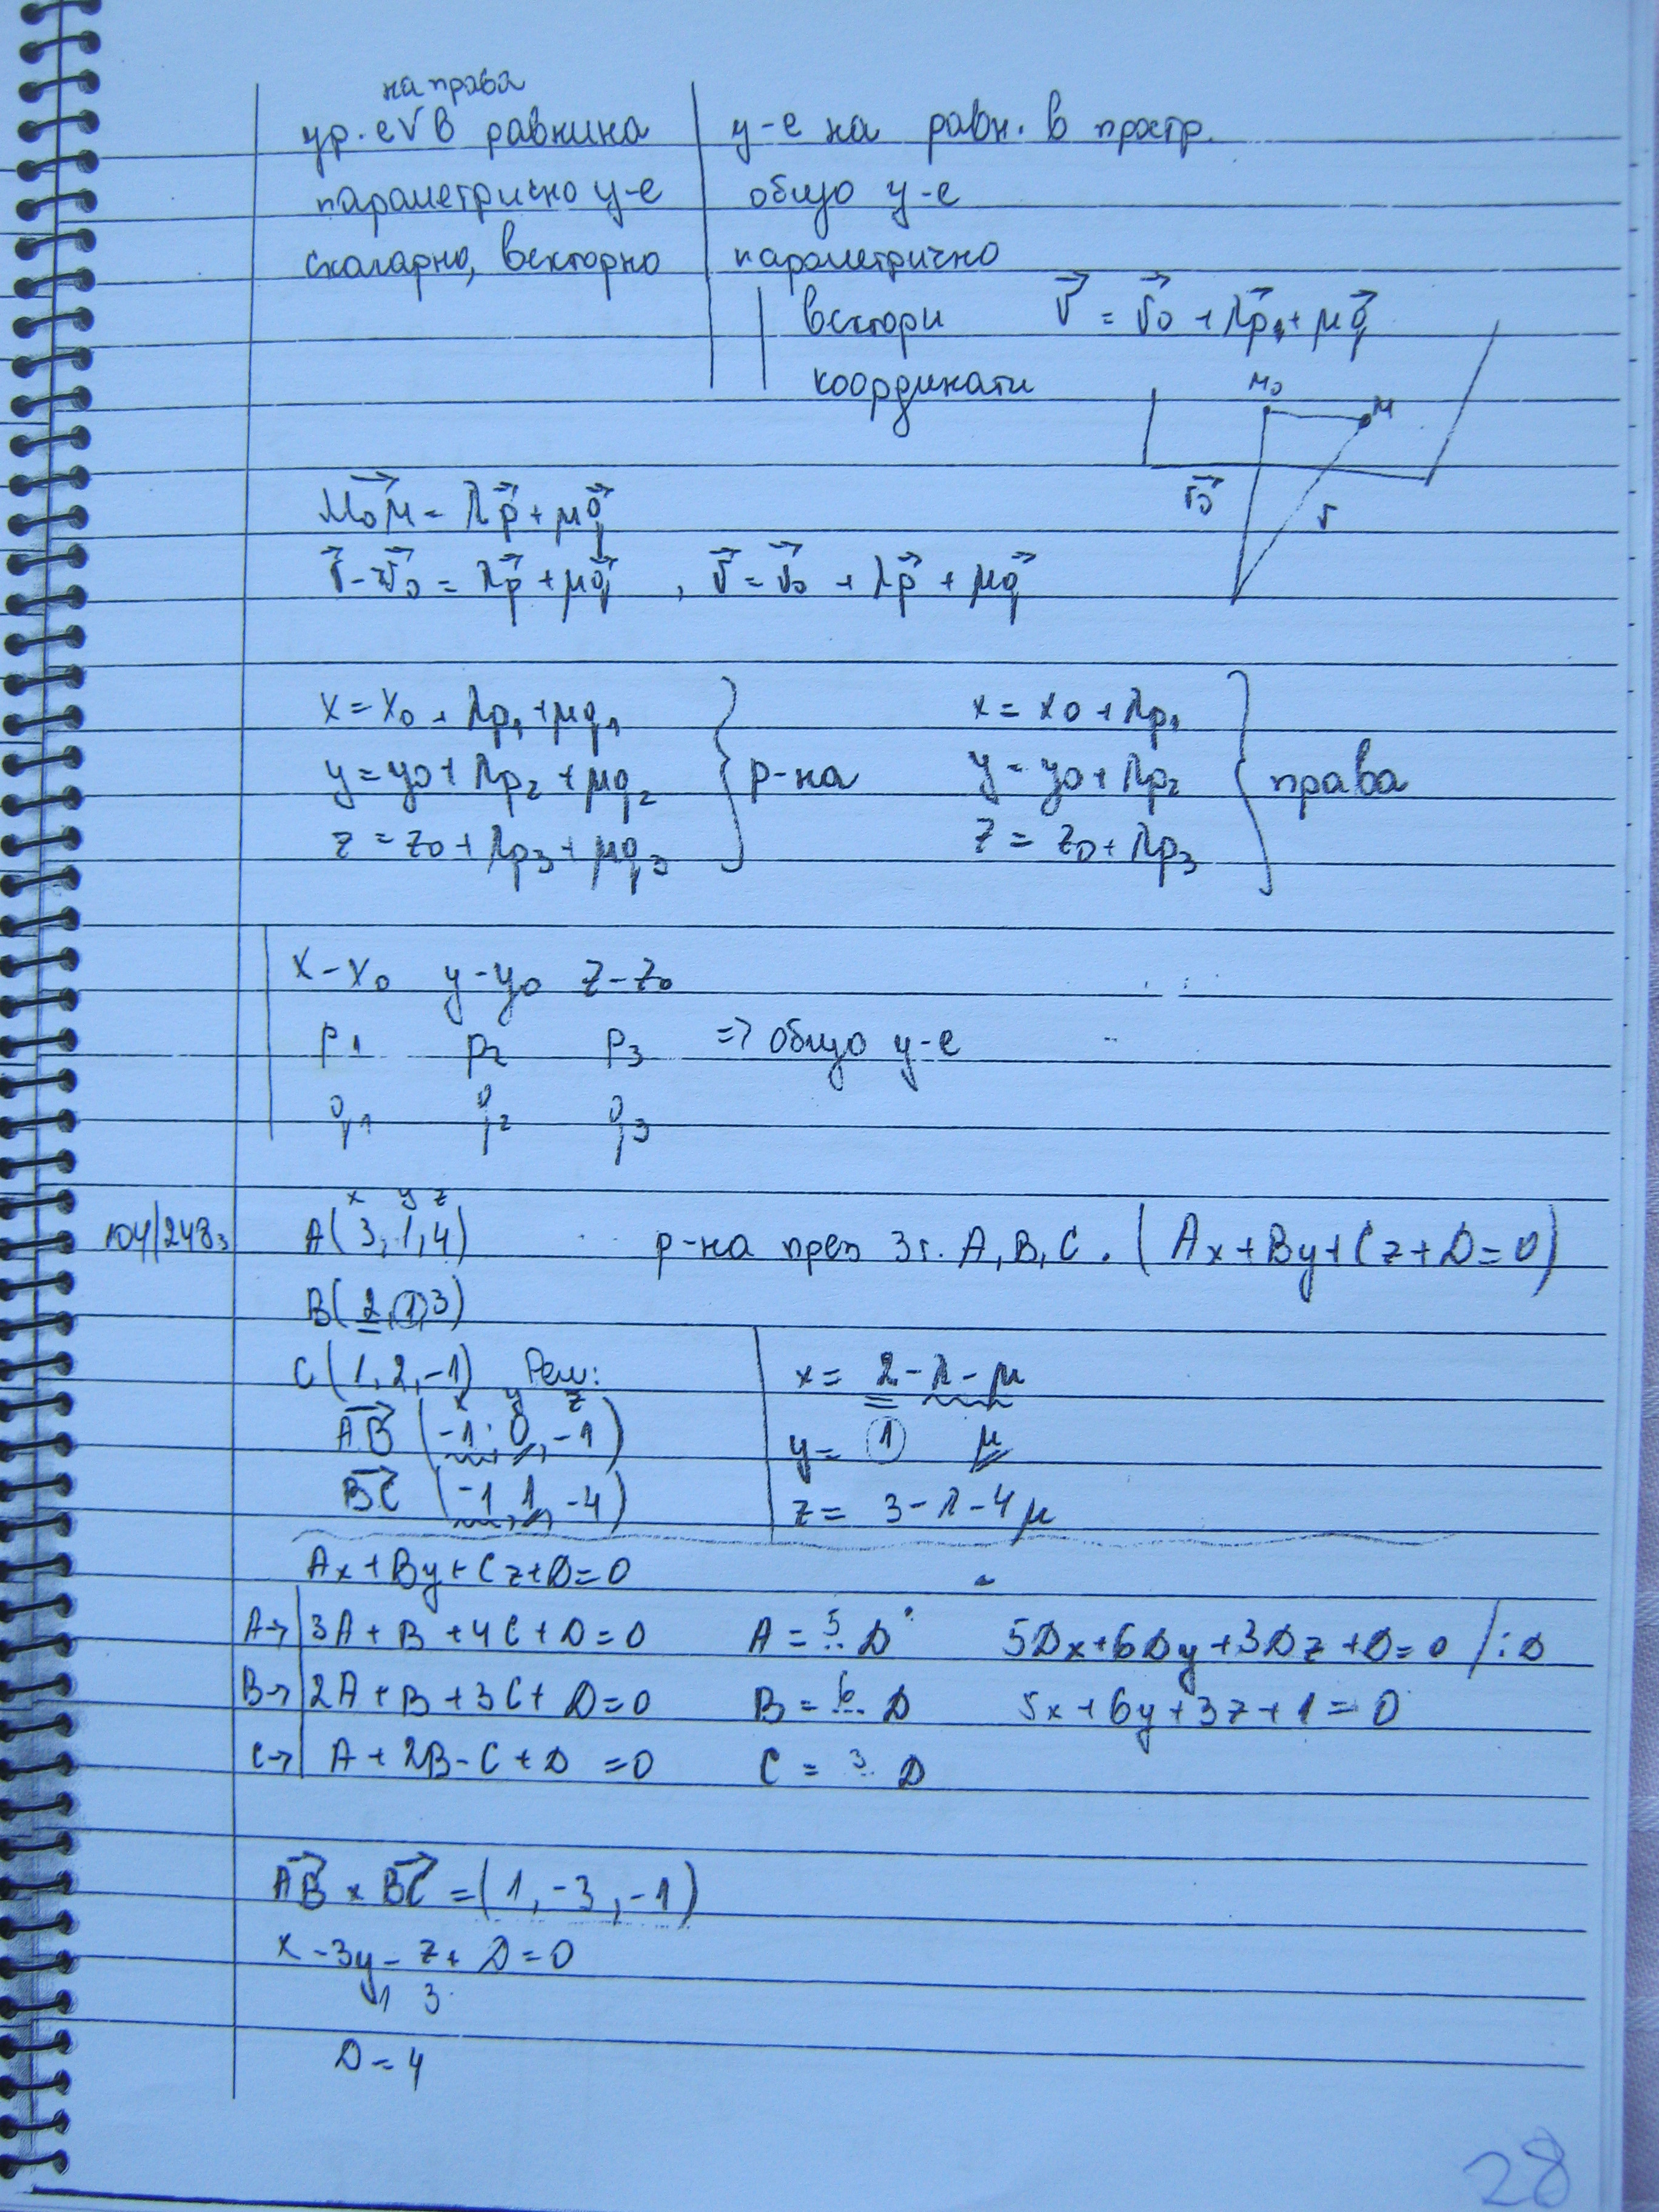 на права
ур. е √ в равнина | у-е на равн. в простр.
параметрично у-е | общо у-е
скаларно, векторно | параметрично
вектори r⃗ = r⃗0 + λp⃗ + μq⃗
координати
M0 M
r⃗0 r
M0M⃗ = λp⃗ + μq⃗
r⃗ - r⃗0 = λp⃗ + μq⃗ , r⃗ = r⃗0 + λp⃗ + μq⃗
x = x0 + λp1 + μq1 x = x0 + λp1
y = y0 + λp2 + μq2 } р-на y = y0 + λp2 } права
z = z0 + λp3 + μq3 z = z0 + λp3
x-x0 y-y0 z-z0
p1 p2 p3 => общо у-е
q1 q2 q3
x y z
104/248з A(3,1,4) р-на през 3т. A,B,C. (Ax+By+Cz+D=0)
B(2,1,3)
C(1,2,-1) Реш: x = 2-λ-μ
x y z
AB⃗ (-1, 0, -1) y = 1 μ
BC⃗ (-1, 1, -4) z = 3-λ-4μ
Ax+By+Cz+D=0
A→ 3A+B+4C+D=0 A = 5 D 5Dx+6Dy+3Dz+D=0 /:D
B→ 2A+B+3C+D=0 B = 6 D 5x+6y+3z+1=0
C→ A+2B-C+D=0 C = 3 D
AB⃗ x BC⃗ = (1, -3, -1)
x-3y-z+D=0
1 3
D=4
28